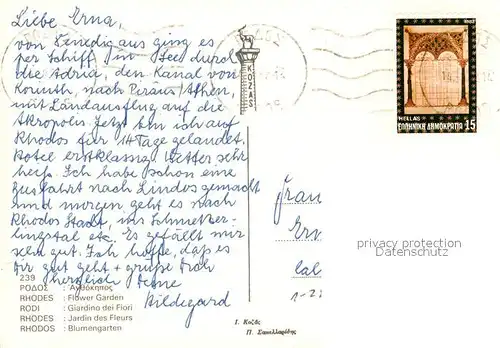 Liebe Erna,
von Venedig aus ging es
per Schiff in See durch
die Adria, den Kanal von
Korinth, nach Peraus/Athen,
mit Landausflug auf die
Akropolis. Jetzt bin ich auf
Rhodos für 14 Tage gelandet.
Hotel erstklassig Wetter sehr
heiß. Ich habe schon eine
Busfahrt nach Lindos gemacht
und morgen geht es nach
Rhodos Stadt, ins Schmetter-
lingstal etc. Es gefällt mir
sehr gut. Ich hoffe, daß es
Dir gut geht + grüße Dich
herzlich Deine
Hildegard
239
ΡΟΔΟΣ : Ανθόκηπος
RHODES : Flower Garden
RODI : Giardino dei Fiori
RHODES : Jardin des Fleurs
RHODOS : Blumengarten
ΚΟΖΑΣ
Γ. Κοζάς
Π. Σακελλαρίδης
1982
HELLAS
ΕΛΛΗΝΙΚΗ ΔΗΜΟΚΡΑΤΙΑ 15
Frau
privacy protection
Datenschutz